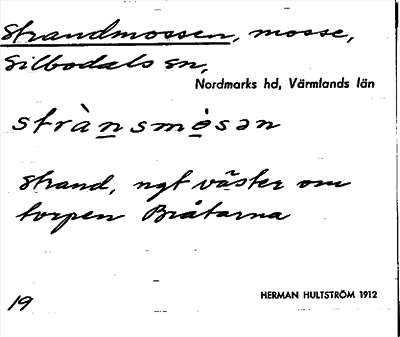 Strandmossen, mosse,
Silbodals sn,
Nordmarks hd, Värmlands län
stràn̲smȯ̲sən
Strand, ngt väster om
torpen Bråtarna
19
HERMAN HULTSTRÖM 1912